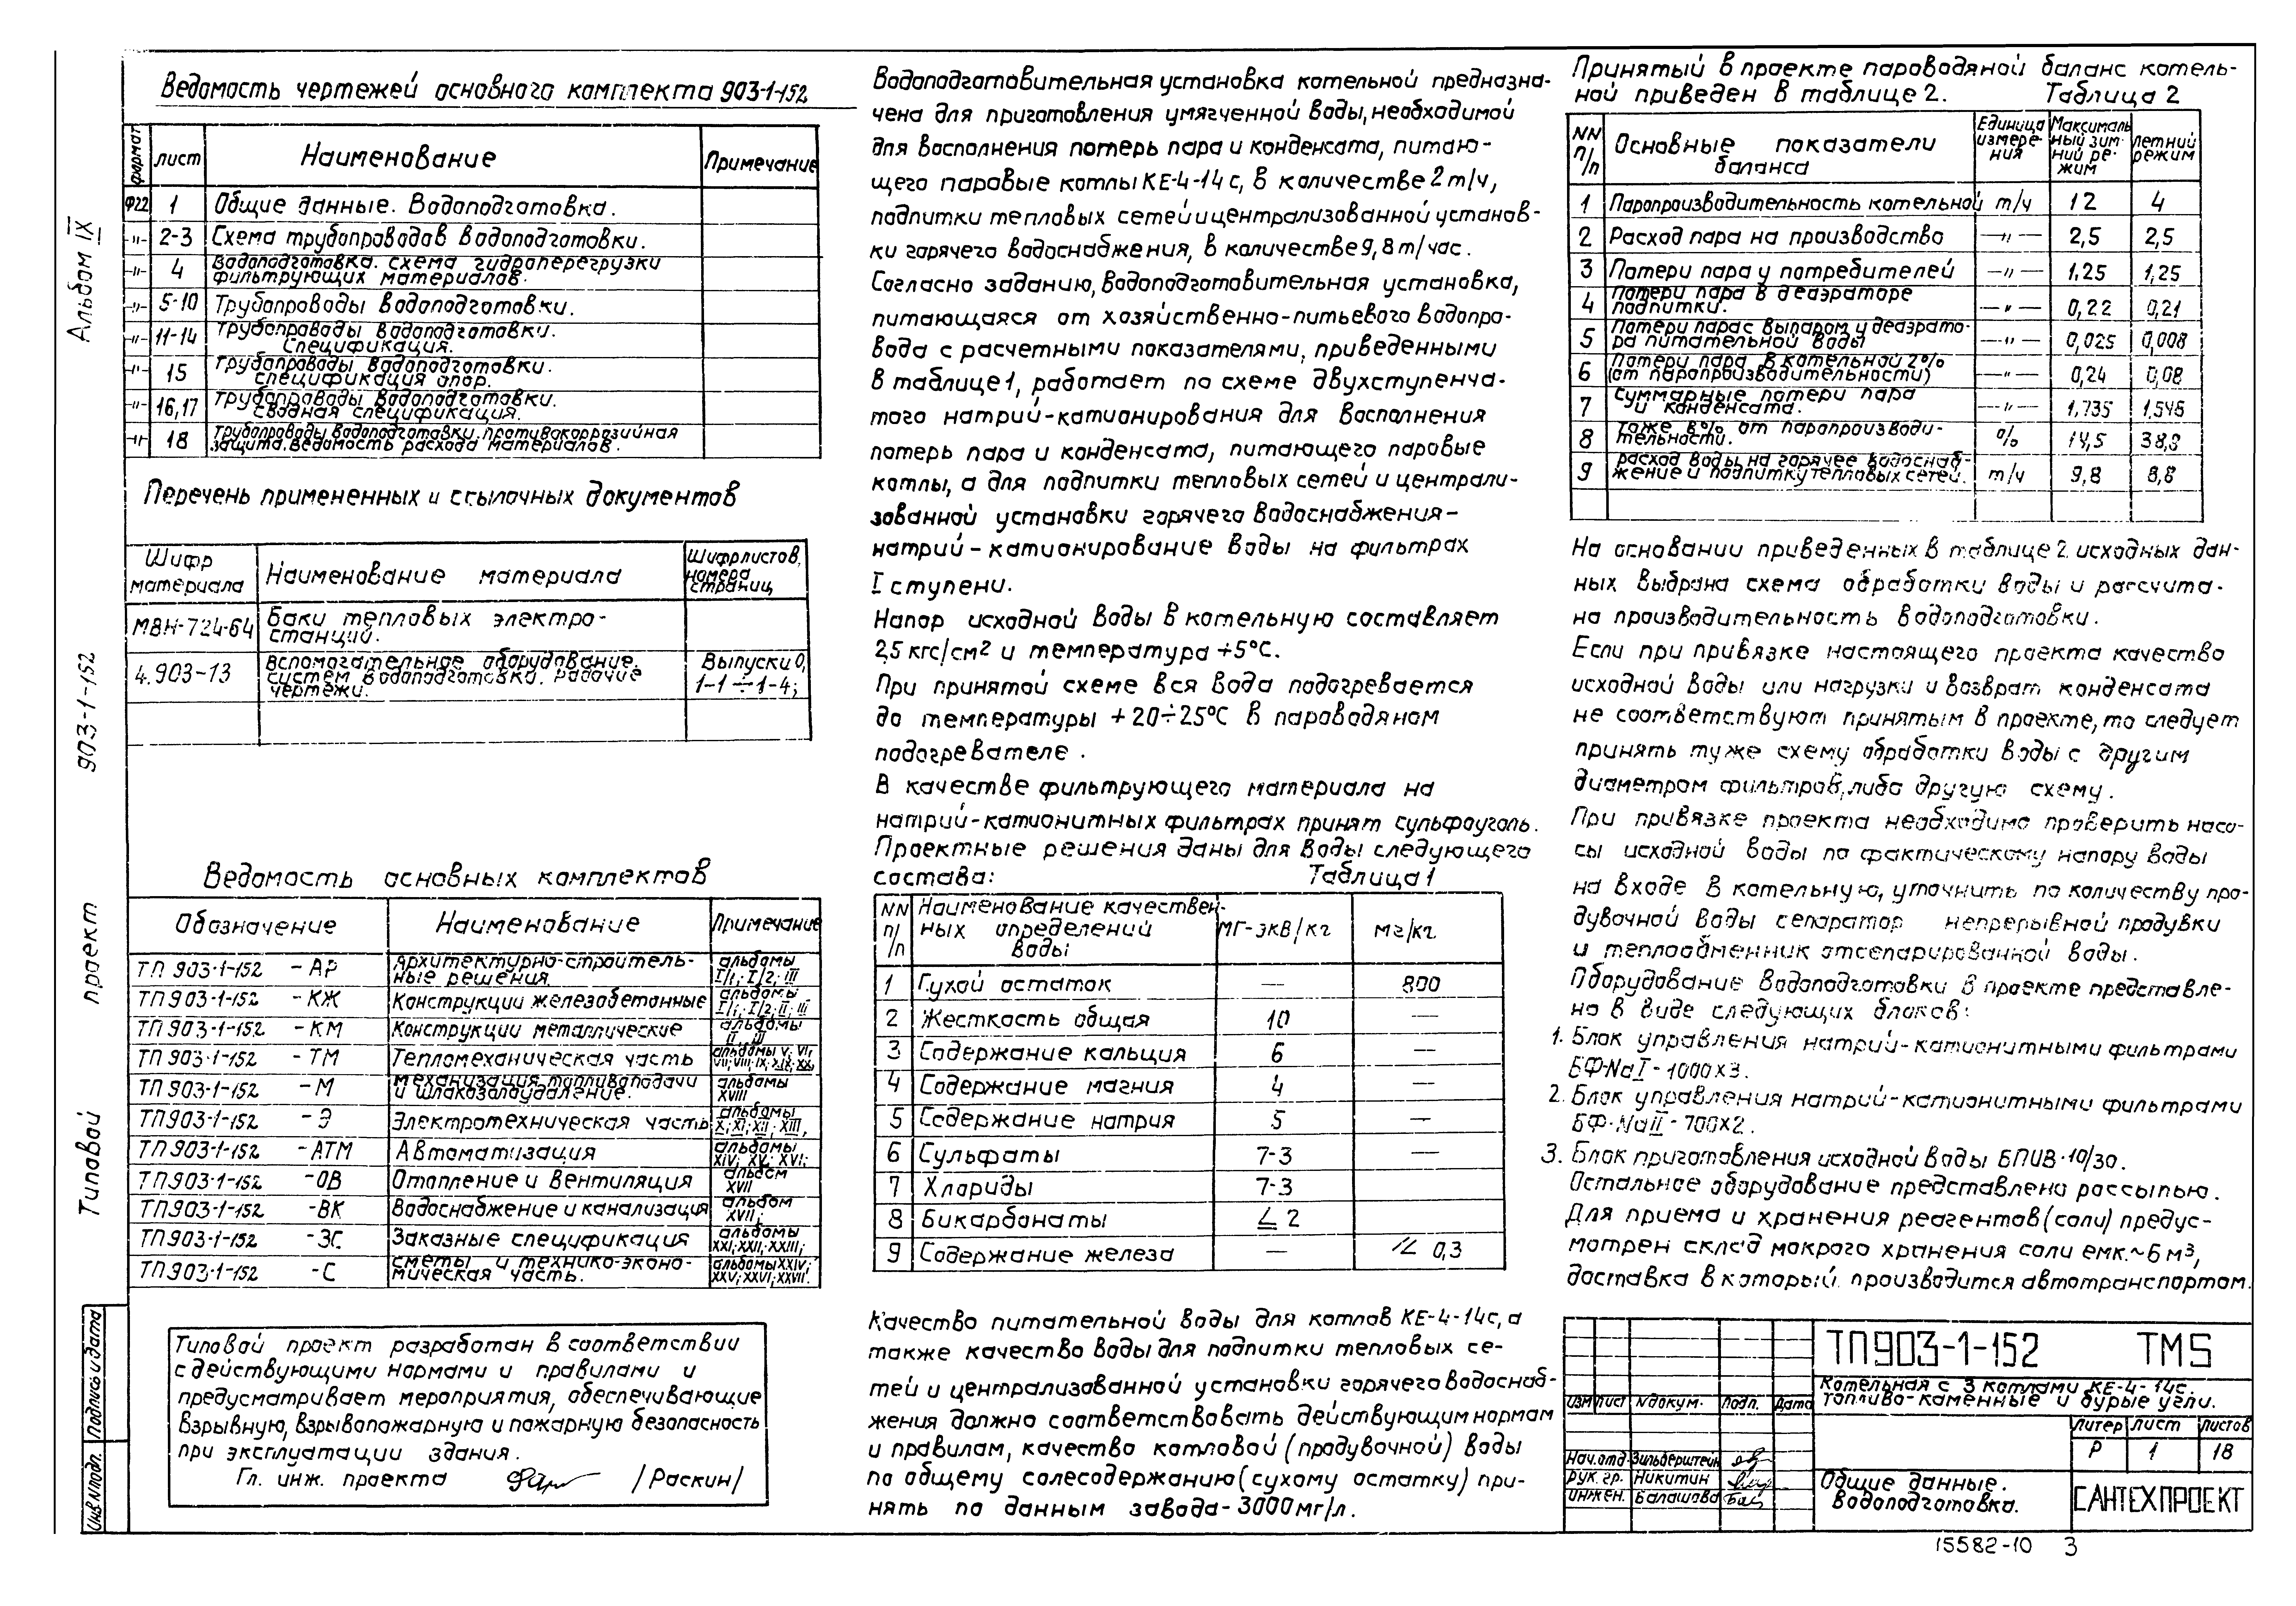 Альбом IX
903-1-152
Типовой проект
Подпись и дата
Инв.N подл.
Ведомость чертежей основного комплекта 903-1-152
формат
лист
Наименование
Примечание
Ф22 1 Общие данные. Водоподготовка.
-"- 2-3 Схема трубопроводов водоподготовки.
-"- 4 Водоподготовка. схема гидроперегрузки
фильтрующих материалов.
-"- 5-10 Трубопроводы водоподготовки.
-"- 11-14 Трубопроводы водоподготовки.
Спецификация.
-"- 15 Трубопроводы водоподготовки.
спецификация опор.
-"- 16,17 Трубопроводы водоподготовки.
сводная спецификация.
-"- 18 Трубопроводы водоподготовки. противокоррозийная
защита. ведомость расхода материалов.
Перечень примененных и ссылочных документов
Шифр
материала
Наименование материала
Шифр листов,
номера
страниц
МВН-724-64 Баки тепловых электро-
станций.
4.903-13 Вспомогательное оборудование.
систем водоподготовка. рабочие
чертежи.
Выпуски 0,
1-1÷1-4;
Ведомость основных комплектов
Обозначение Наименование Примечание
ТП 903-1-152 -АР Архитектурно-строитель-
ные решения.
альбомы
I/1; I/2; III
ТП 903-1-152 -КЖ Конструкции железобетонные альбомы
I/1; I/2; II; III
ТП 903-1-152 -КМ Конструкции металлические альбомы
II, III
ТП 903-1-152 -ТМ Тепломеханическая часть альбомы V; VI,
VII; VIII; IX; XIX; XX,
ТП 903-1-152 -М Механизация топливоподачи
и шлакозолоудаление.
альбомы
XVIII
ТП 903-1-152 -Э Электротехническая часть альбомы
X; XI; XII; XIII,
ТП 903-1-152 -АТМ Автоматизация альбомы
XIV; XV; XVI;
ТП 903-1-152 -ОВ Отопление и вентиляция альбом
XVII
ТП 903-1-152 -ВК Водоснабжение и канализация альбом
XVII;
ТП 903-1-152 -ЗС Заказные спецификация альбомы
XXI; XXII; XXIII;
ТП 903-1-152 -С сметы и технико-эконо-
мическая часть.
альбомы XXIV;
XXV; XXVI; XXVII.
Типовой проект разработан в соответствии
с действующими нормами и правилами и
предусматривает мероприятия, обеспечивающие
взрывную, взрывопожарную и пожарную безопасность
при эксплуатации здания.
Гл. инж. проекта /Раскин/
Водоподготовительная установка котельной предназна-
чена для приготовления умягченной воды, необходимой
для восполнения потерь пара и конденсата, питаю-
щего паровые котлы КЕ-4-14с, в количестве 2 т/ч,
подпитки тепловых сетей и централизованной установ-
ки горячего водоснабжения, в количестве 9,8 т/час.
Согласно заданию, водоподготовительная установка,
питающаяся от хозяйственно-питьевого водопро-
вода с расчетными показателями, приведенными
в таблице 1, работает по схеме двухступенча-
того натрий-катионирования для восполнения
потерь пара и конденсата, питающего паровые
котлы, а для подпитки тепловых сетей и централи-
зованной установки горячего водоснабжения-
натрий-катионирование воды на фильтрах
I ступени.
Напор исходной воды в котельную составляет
2,5 кгс/см2 и температура +5°С.
При принятой схеме вся вода подогревается
до температуры +20÷25°С в пароводяном
подогревателе.
В качестве фильтрующего материала на
натрий-катионитных фильтрах принят сульфоуголь.
Проектные решения даны для воды следующего
состава: Таблица 1
NN
п/п
Наименование качествен-
ных определений
воды
МГ-экв/кг мг/кг
1 Сухой остаток — 800
2 Жесткость общая 10 —
3 Содержание кальция 6 —
4 Содержание магния 4 —
5 Содержание натрия 5 —
6 Сульфаты 7-3 —
7 Хлориды 7-3
8 Бикарбонаты ≤ 2
9 Содержание железа — ≤ 0,3
Качество питательной воды для котлов КЕ-4-14с, а
также качество воды для подпитки тепловых се-
тей и централизованной установки горячего водоснаб-
жения должно соответствовать действующим нормам
и правилам, качество котловой (продувочной) воды
по общему солесодержанию (сухому остатку) при-
нять по данным завода-3000мг/л.
Принятый в проекте пароводяной баланс котель-
ной приведен в таблице 2. Таблица 2
NN
п/п
Основные показатели
баланса
Единица
измере-
ния
Максималь
ный зим-
ний ре-
жим
летний
режим
1 Паропроизводительность котельной т/ч 12 4
2 Расход пара на производство —"— 2,5 2,5
3 Потери пара у потребителей —"— 1,25 1,25
4 Потери пара в деаэраторе
подпитки. —"— 0,22 0,21
5 Потери пара с выпаром у деаэрато-
ра питательной воды —"— 0,025 0,008
6 Потери пара в котельной 2%
(от паропроизводительности) —"— 0,24 0,08
7 Суммарные потери пара
и конденсата. —"— 1,735 1,545
8 тоже в % от паропроизводи-
тельности. % 14,5 38,8
9 расход воды на горячее водоснаб-
жение и подпитку тепловых сетей. т/ч 9,8 8,8
На основании приведенных в таблице 2 исходных дан-
ных выбрана схема обработки воды и рассчита-
на производительность водоподготовки.
Если при привязке настоящего проекта качество
исходной воды или нагрузки и возврат конденсата
не соответствуют принятым в проекте, то следует
принять ту же схему обработки воды с другим
диаметром фильтров, либо другую схему.
При привязке проекта необходимо проверить насо-
сы исходной воды по фактическому напору воды
на входе в котельную, уточнить по количеству про-
дувочной воды сепаратор непрерывной продувки
и теплообменник отсепарированной воды.
Оборудование водоподготовки в проекте представле-
но в виде следующих блоков:
1. Блок управления натрий-катионитными фильтрами
БФ-NaI-1000х3.
2. Блок управления натрий-катионитными фильтрами
БФ-NaII-700х2.
3. Блок приготовления исходной воды БПИВ-10/30.
Остальное оборудование представлено россыпью.
Для приема и хранения реагентов (соли) предус-
мотрен склад мокрого хранения соли емк.~6 м3,
доставка в который производится автотранспортом.
ТП903-1-152 ТМ5
Котельная с 3 котлами КЕ-4-14с.
Топливо-каменные и бурые угли.
изм лист Nдокум. Подп. Дата
Литер лист листов
Р 1 18
Нач.отд. Зильберштеин
Рук. гр. Никитин
инжен. Балашова
Общие данные.
Водоподготовка.
САНТЕХПРОЕКТ
15582-10 3